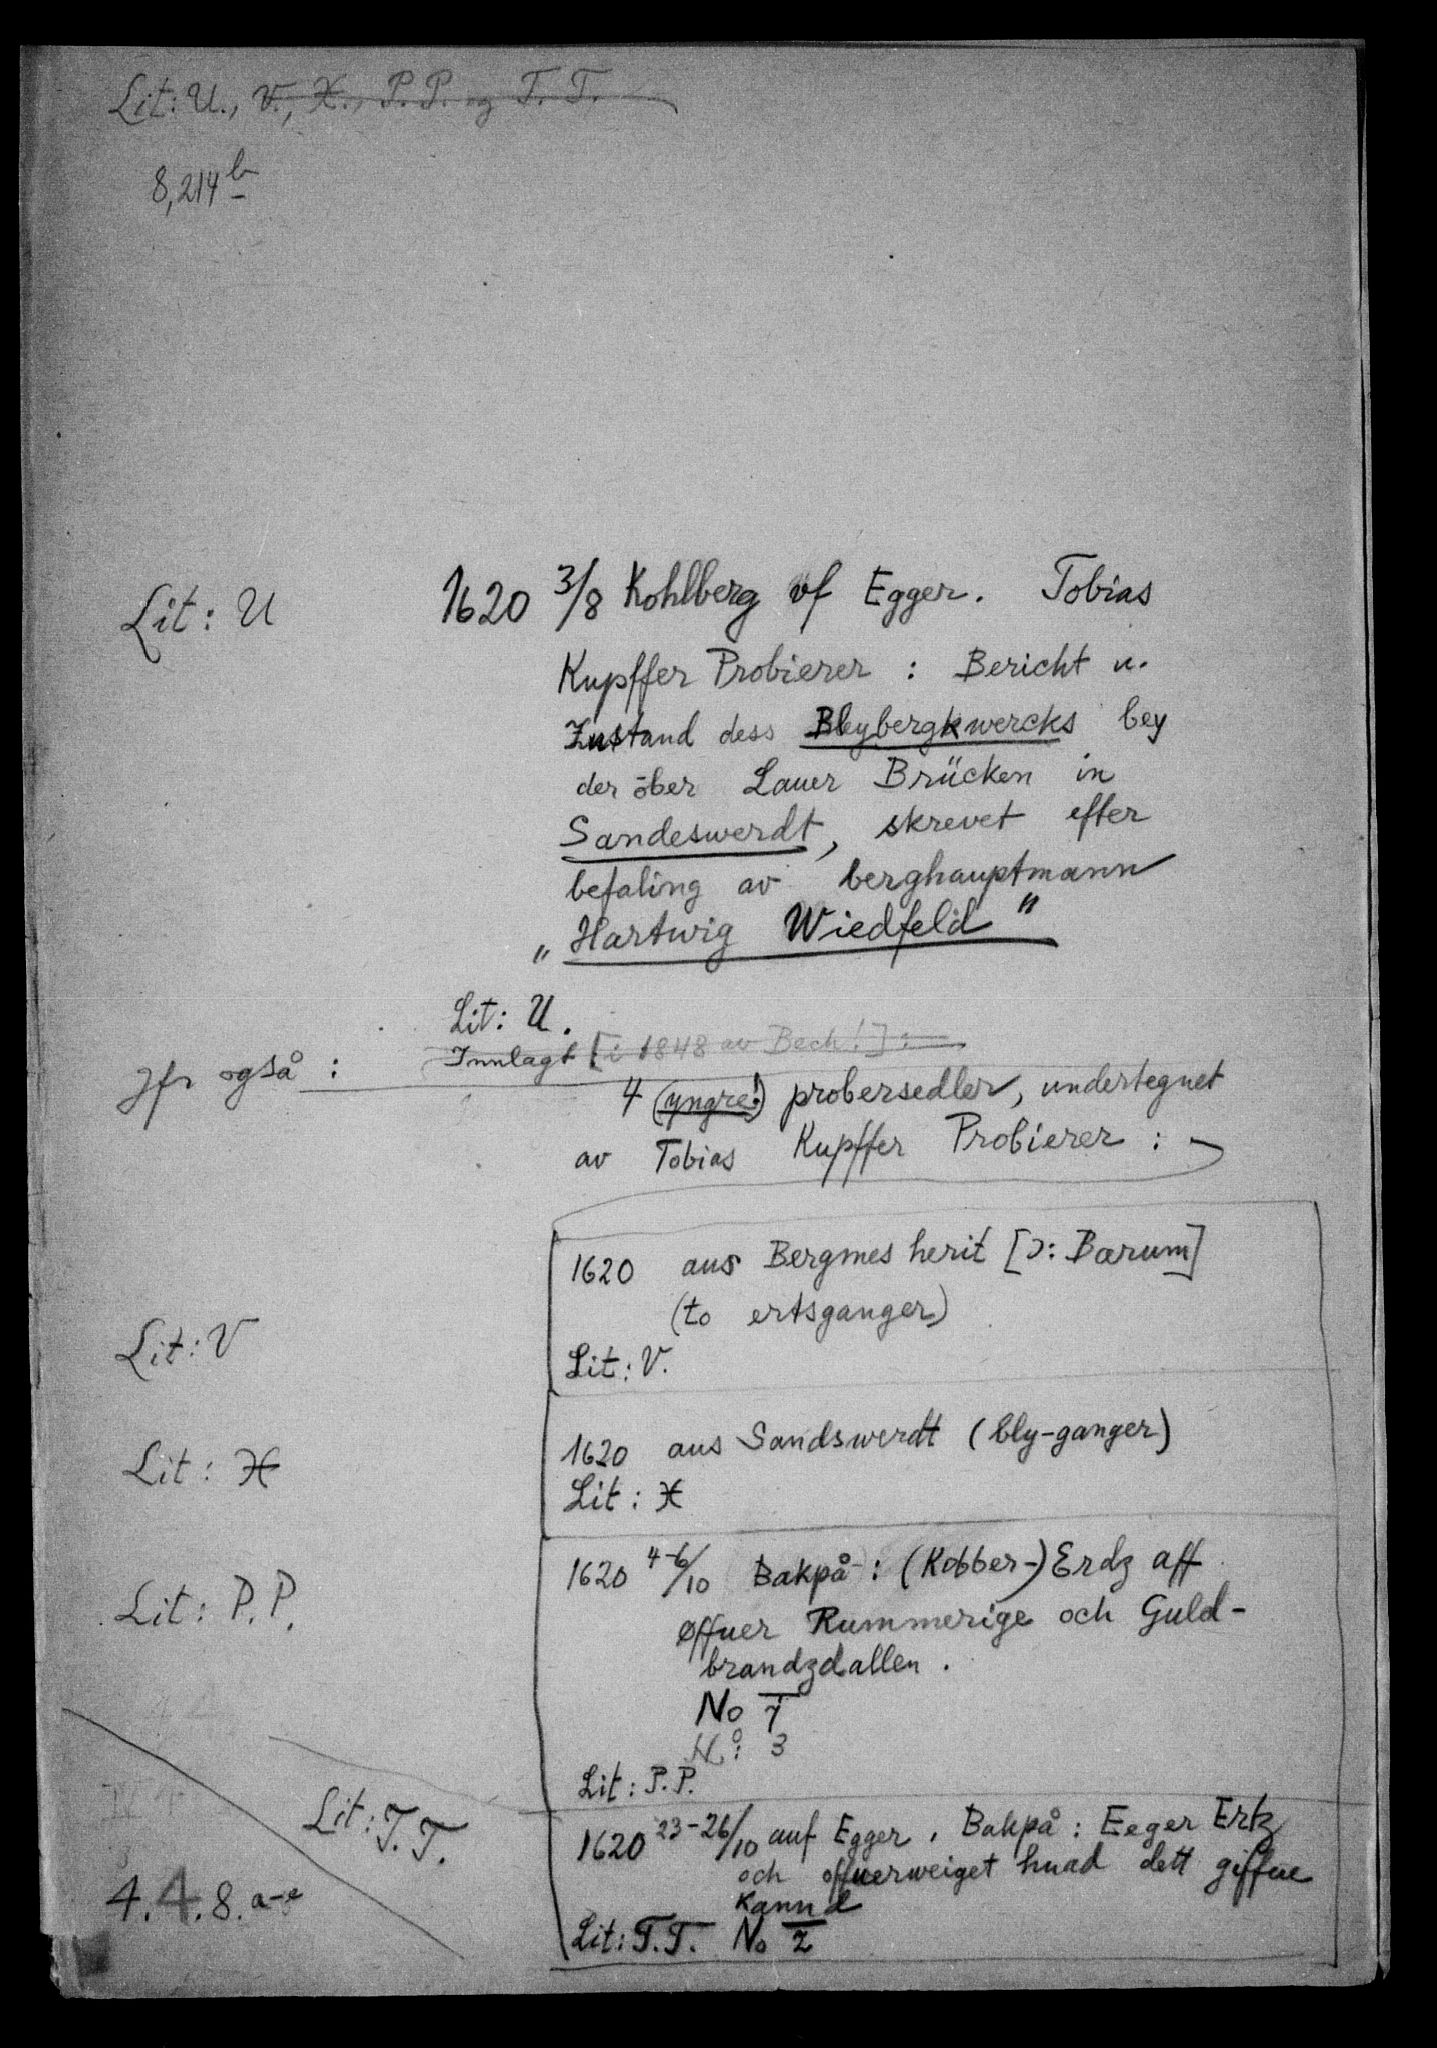 Lit: U., V., X., P.P. og T.T.
8,214 b
Lit: U 1620 3/8 Kohlberg uf Egger. Tobias
Kupffer Probierer : Bericht u.
Zustand dess Bleybergkwercks bey
der öber Lauer Brücken in
Sandeswerdt, skrevet efter
befaling av berghauptmann
„Hartwig Wiedfeld"
Lit: U.
jfr også : Innlagt [i 1848 av Bech!] :
4 (yngre!) probersedler, undertegnet
av Tobias Kupffer Probierer :
1620 aus Bergmes herit [ɔ: Bærum]
(to ertsganger)
Lit: V
Lit: V.
1620 aus Sandswerdt (bly-ganger)
Lit: X
Lit: X
1620 4-6/10 Bakpå : (Kobber-) Erdz aff
Lit: P.P.
øffuer Rummerige och Guld-
brandzdallen.
No 1
No: 3
Lit: P.P.
Lit: T.T.
1620 23-26/10 auf Egger. Bakpå : Eeger Ertz
och offuerweiget huad dett giffue
kannd
Lit: T.T. No 2
4.4.8. a-e